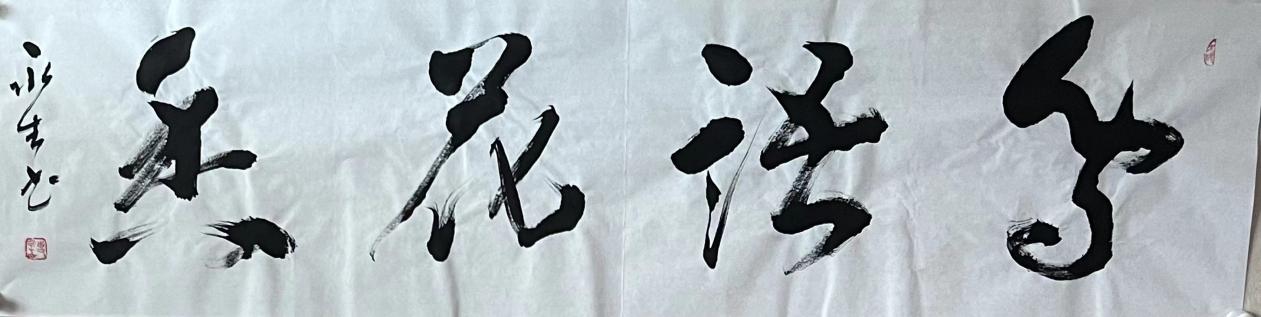 鸟语花香
永生书